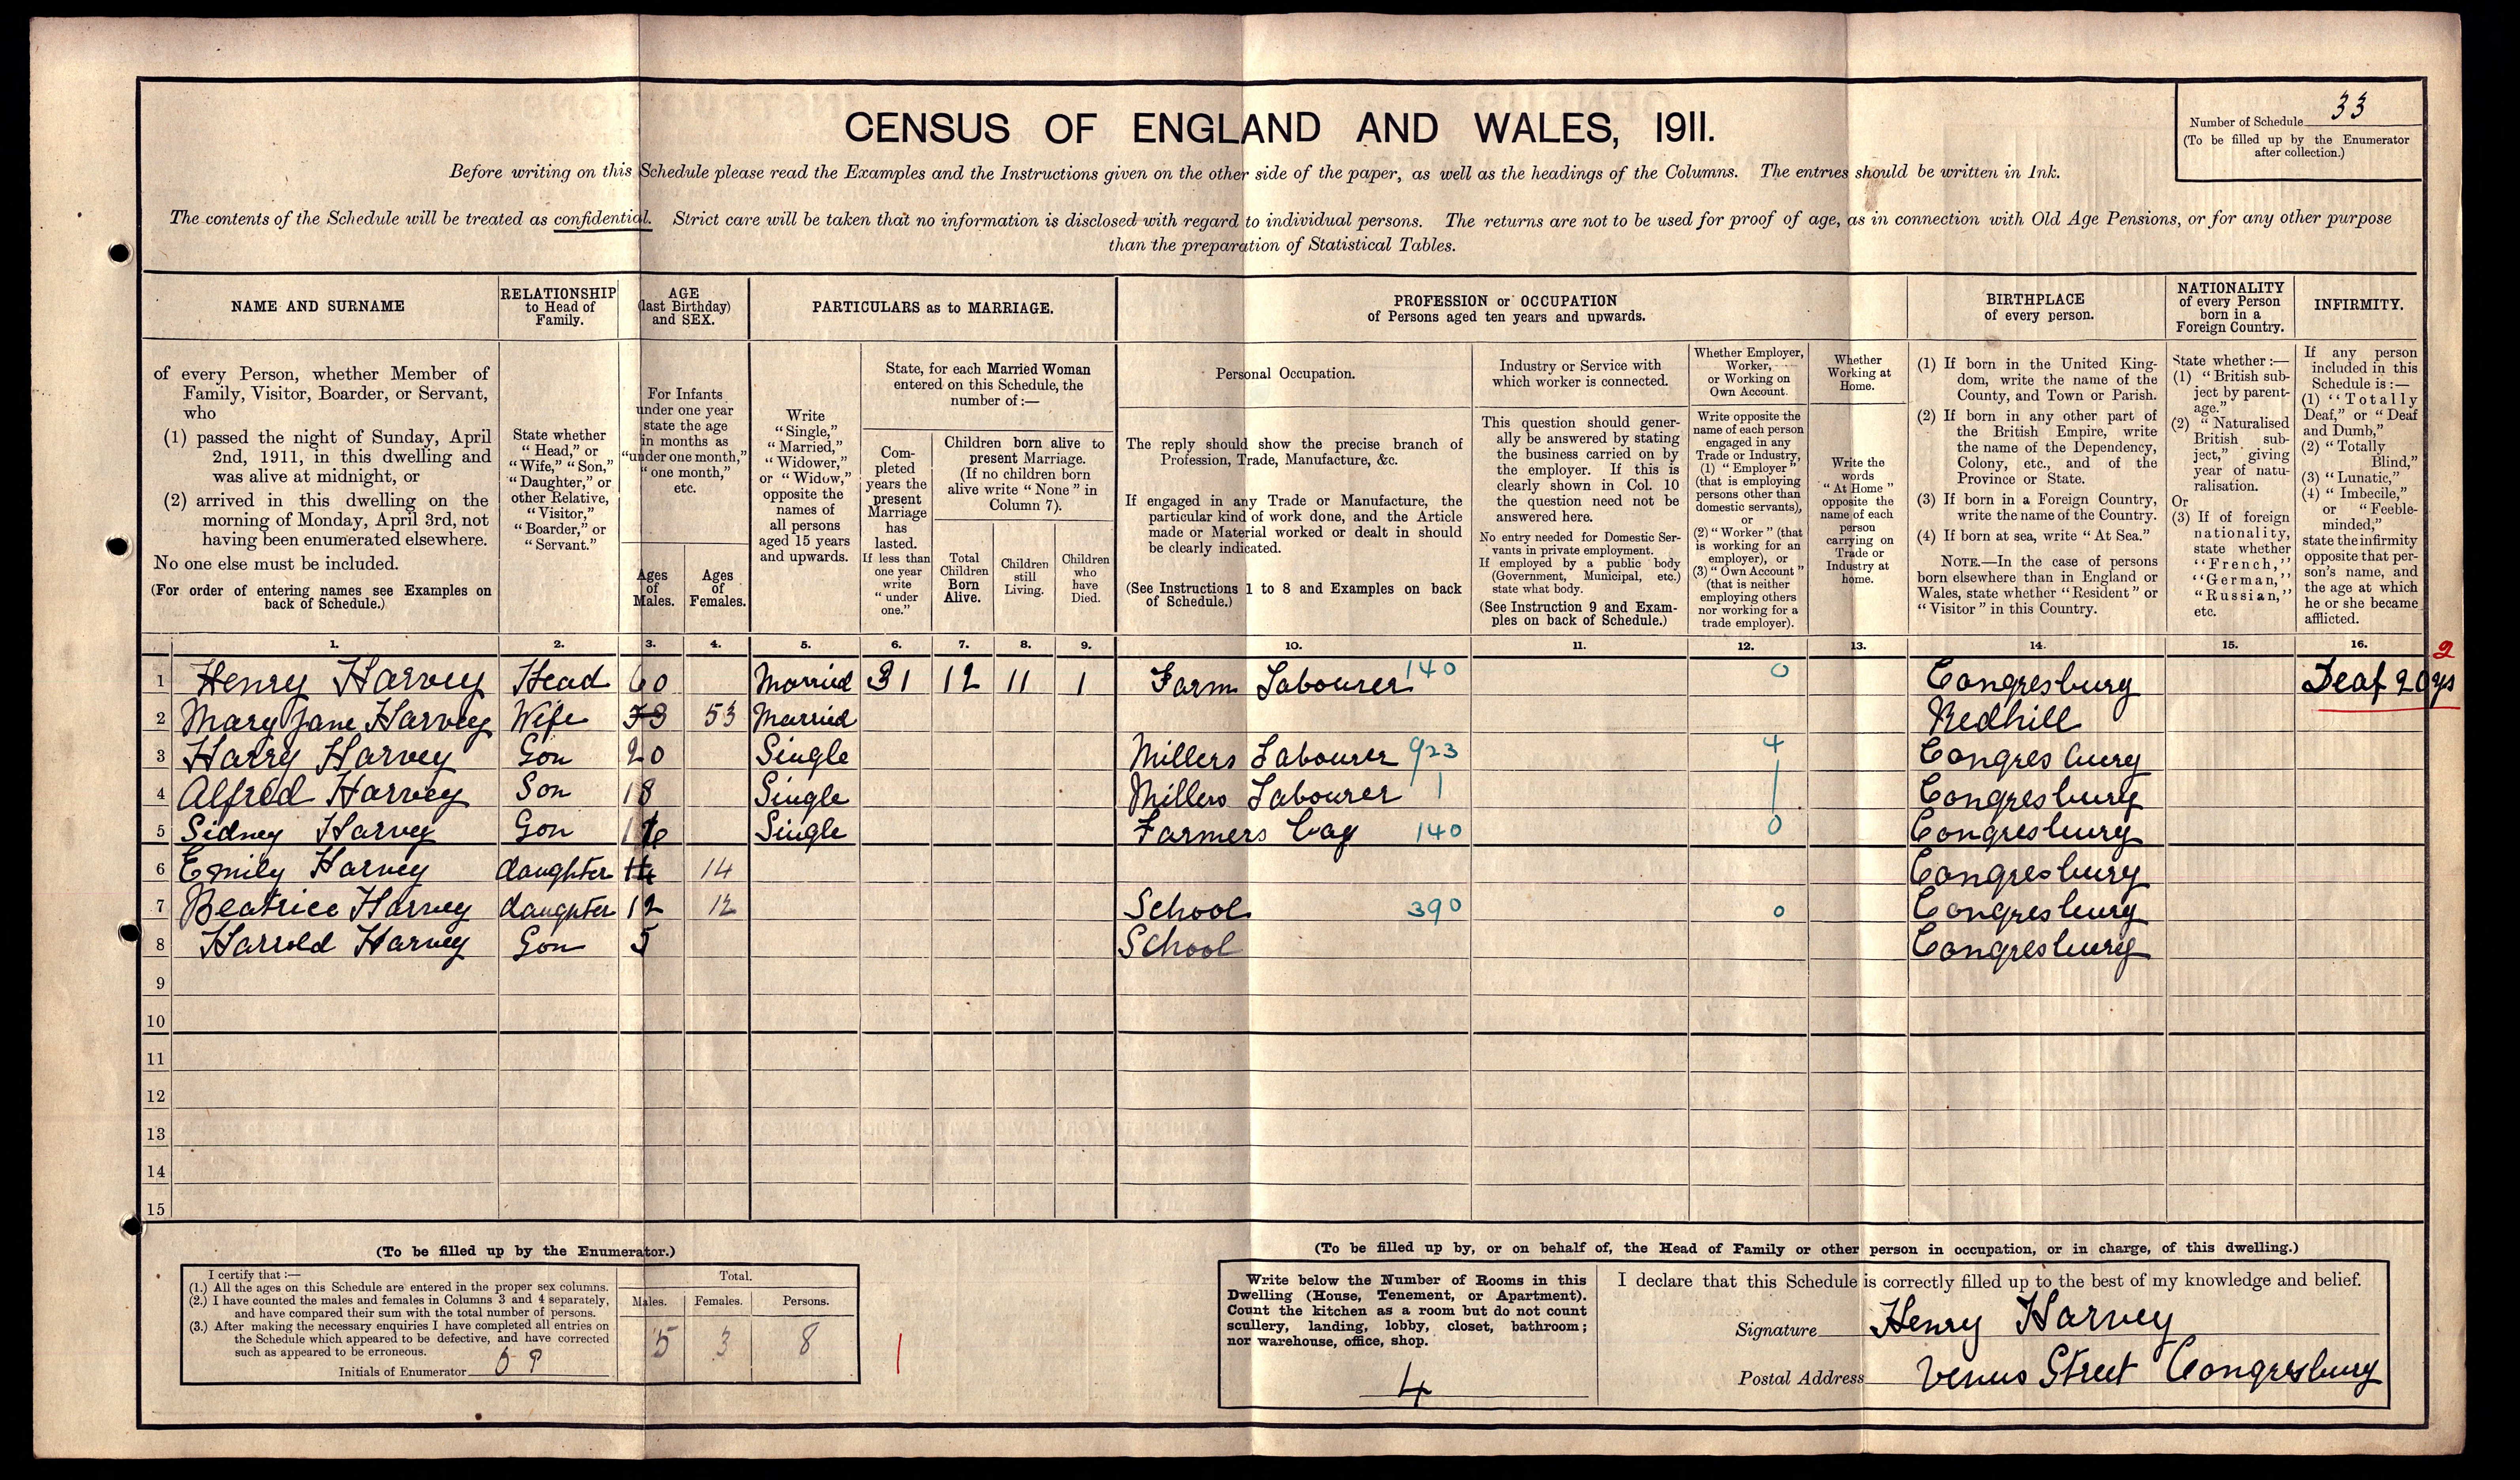 CENSUS OF ENGLAND AND WALES, 1911.
Number of Schedule 33
(To be filled up by the Enumerator
after collection.)
Before writing on this Schedule please read the Examples and the Instructions given on the other side of the paper, as well as the headings of the Columns. The entries should be written in Ink.
The contents of the Schedule will be treated as confidential. Strict care will be taken that no information is disclosed with regard to individual persons. The returns are not to be used for proof of age, as in connection with Old Age Pensions, or for any other purpose
than the preparation of Statistical Tables.
NAME AND SURNAME
of every Person, whether Member of
Family, Visitor, Boarder, or Servant,
who
(1) passed the night of Sunday, April
2nd, 1911, in this dwelling and
was alive at midnight, or
(2) arrived in this dwelling on the
morning of Monday, April 3rd, not
having been enumerated elsewhere.
No one else must be included.
(For order of entering names see Examples on
back of Schedule.)
RELATIONSHIP
to Head of
Family.
State whether
"Head," or
"Wife," "Son,"
"Daughter," or
other Relative,
"Visitor,"
"Boarder," or
"Servant."
AGE
(last Birthday)
and SEX.
For Infants
under one year
state the age
in months as
"under one month,"
"one month,"
etc.
Ages
of
Males.
Ages
of
Females.
PARTICULARS as to MARRIAGE.
Write
"Single,"
"Married,"
"Widower,"
or "Widow,"
opposite the
names of
all persons
aged 15 years
and upwards.
State, for each Married Woman
entered on this Schedule, the
number of:—
Com-
pleted
years the
present
Marriage
has
lasted.
If less than
one year
write
"under
one."
Children born alive to
present Marriage.
(If no children born
alive write "None" in
Column 7).
Total
Children
Born
Alive.
Children
still
Living.
Children
who
have
Died.
PROFESSION or OCCUPATION
of Persons aged ten years and upwards.
Personal Occupation.
The reply should show the precise branch of
Profession, Trade, Manufacture, &c.
If engaged in any Trade or Manufacture, the
particular kind of work done, and the Article
made or Material worked or dealt in should
be clearly indicated.
(See Instructions 1 to 8 and Examples on back
of Schedule.)
Industry or Service with
which worker is connected.
This question should gener-
ally be answered by stating
the business carried on by
the employer. If this is
clearly shown in Col. 10
the question need not be
answered here.
No entry needed for Domestic Ser-
vants in private employment.
If employed by a public body
(Government, Municipal, etc.)
state what body.
(See Instruction 9 and Exam-
ples on back of Schedule.)
Whether Employer,
Worker,
or Working on
Own Account.
Write opposite the
name of each person
engaged in any
Trade or Industry,
(1) "Employer"
(that is employing
persons other than
domestic servants),
or
(2) "Worker" (that
is working for an
employer), or
(3) "Own Account"
(that is neither
employing others
nor working for a
trade employer).
Whether
Working at
Home.
Write the
words
"At Home"
opposite the
name of each
person
carrying on
Trade or
Industry at
home.
BIRTHPLACE
of every person.
(1) If born in the United King-
dom, write the name of the
County, and Town or Parish.
(2) If born in any other part of
the British Empire, write
the name of the Dependency,
Colony, etc., and of the
Province or State.
(3) If born in a Foreign Country,
write the name of the Country.
(4) If born at sea, write "At Sea."
NOTE.—In the case of persons
born elsewhere than in England or
Wales, state whether "Resident" or
"Visitor" in this Country.
NATIONALITY
of every Person
born in a
Foreign Country.
State whether:—
(1) "British sub-
ject by parent-
age."
(2) "Naturalised
British sub-
ject," giving
year of natu-
ralisation.
Or
(3) If of foreign
nationality,
state whether
"French,"
"German,"
"Russian,"
etc.
INFIRMITY.
If any person
included in this
Schedule is:—
(1) "Totally
Deaf," or "Deaf
and Dumb,"
(2) "Totally
Blind,"
(3) "Lunatic,"
(4) "Imbecile,"
or "Feeble-
minded,"
state the infirmity
opposite that per-
son's name, and
the age at which
he or she became
afflicted.
1. 2. 3. 4. 5. 6. 7. 8. 9. 10. 11. 12. 13. 14. 15. 16.
2
1 Henry Harvey Head 60 Married 31 12 11 1 Farm Labourer 140 0 Congresbury Deaf 20 ys
2 Mary Jane Harvey Wife 53 Married Redhill
3 Harry Harvey Son 20 Single Millers Labourer 923 4 Congresbury
4 Alfred Harvey Son 18 Single Millers Labourer Congresbury
5 Sidney Harvey Son 16 Single Farmers 140 0 Congresbury
6 Emily Harvey daughter 14 14 Congresbury
7 Beatrice Harvey daughter 12 12 School 390 0 Congresbury
8 Harrold Harvey Son 5 School Congresbury
9
10
11
12
13
14
15
(To be filled up by the Enumerator.)
I certify that:—
(1.) All the ages on this Schedule are entered in the proper sex columns.
(2.) I have counted the males and females in Columns 3 and 4 separately,
and have compared their sum with the total number of persons.
(3.) After making the necessary enquiries I have completed all entries on
the Schedule which appeared to be defective, and have corrected
such as appeared to be erroneous.
Initials of Enumerator
Total.
Males. Females. Persons.
5 3 8
(To be filled up by, or on behalf of, the Head of Family or other person in occupation, or in charge, of this dwelling.)
Write below the Number of Rooms in this
Dwelling (House, Tenement, or Apartment).
Count the kitchen as a room but do not count
scullery, landing, lobby, closet, bathroom;
nor warehouse, office, shop.
4
I declare that this Schedule is correctly filled up to the best of my knowledge and belief.
Signature Henry Harvey
Postal Address Venus Street Congresbury